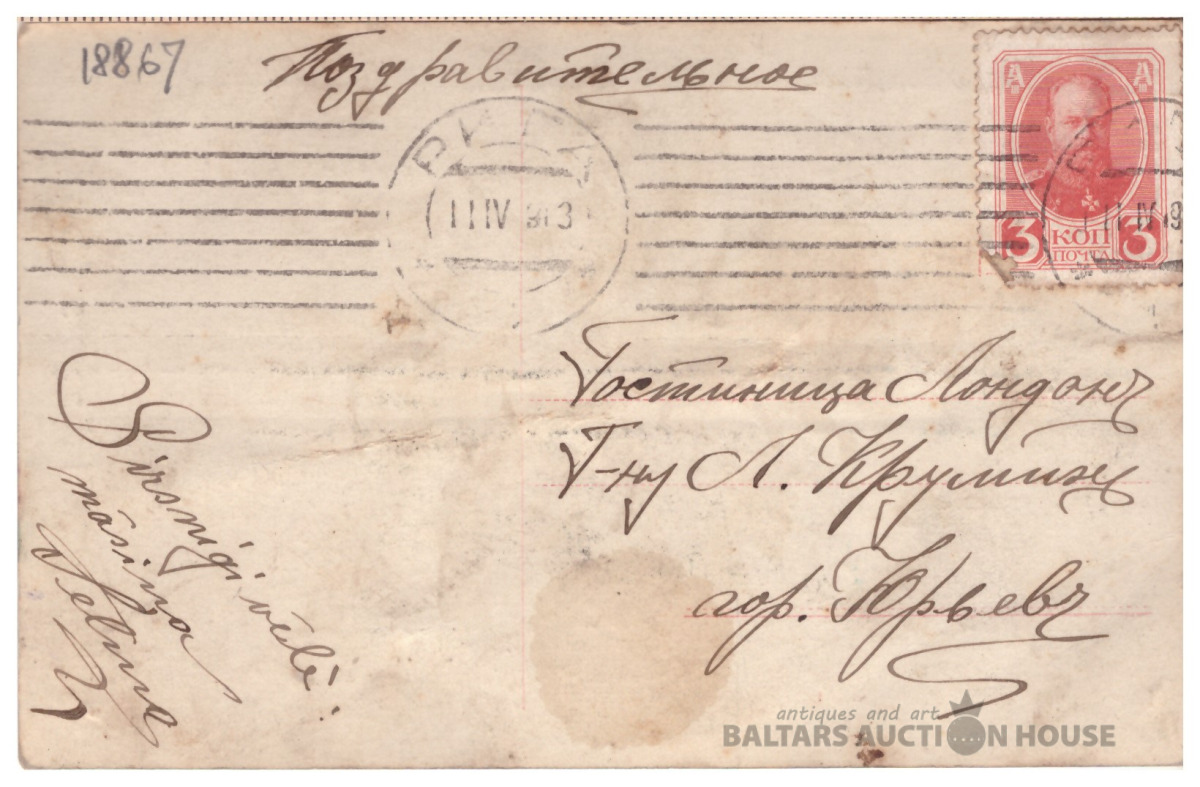 18867
Поздравительное
РИГА
11 IV 913
А А
3 КОП 3
ПОЧТА
11 IV 19
Гостиница Лондонъ
Г-ну Л. Круминъ
гор. Юрьевъ
Sirsnigi
māsiņa
antiques and art
BALTARS AUCTION HOUSE